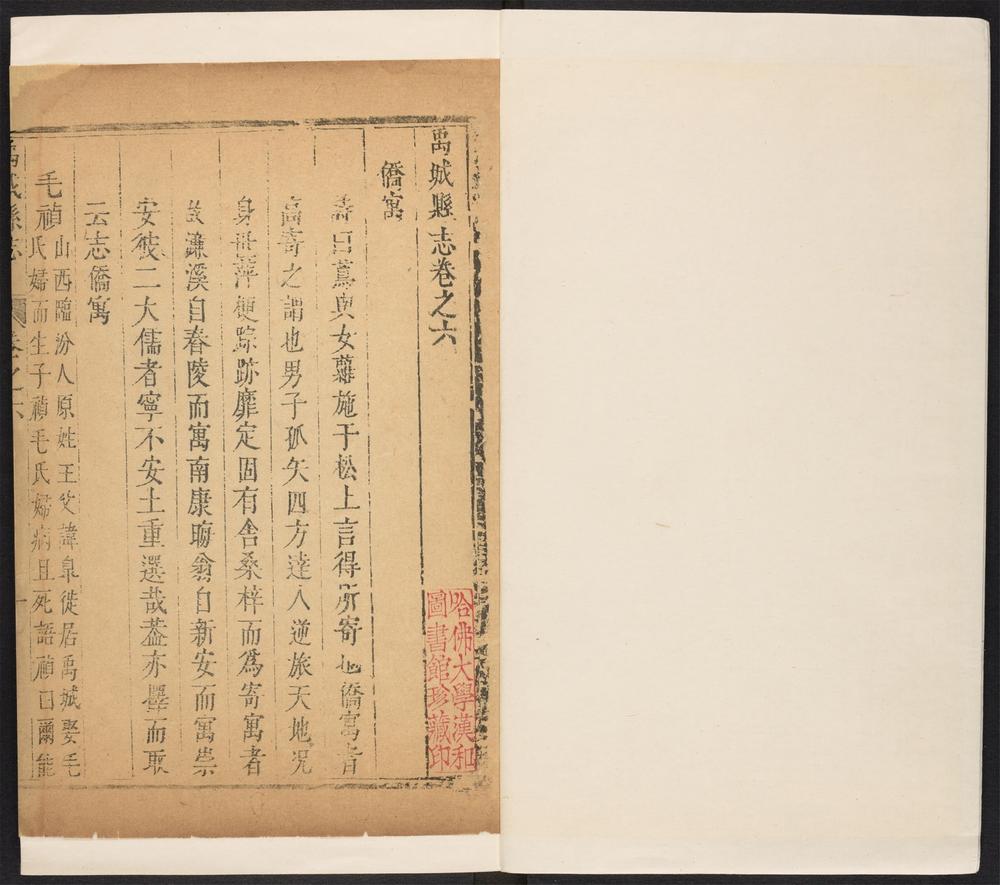 禹城縣志卷之六
僑寓
詩曰蔦與女蘿施于松上言得所寄也僑寓者
高寄之謂也男子孤矢四方達人逆旅天地況
身世萍梗踪跡靡定固有舍桑梓而爲寄寓者
故濂溪自春陵而寓南康晦翁自新安而寓崇
安彼二大儒者寧不安土重選哉葢亦擇而取
云志僑寓
毛禎山西臨汾人原姓王父諱泉徙居禹城娶毛
氏婦而生子禎毛氏婦病且死語禎曰爾能
禹城縣志 卷之六 一
哈佛大學漢和
圖書館珍藏印